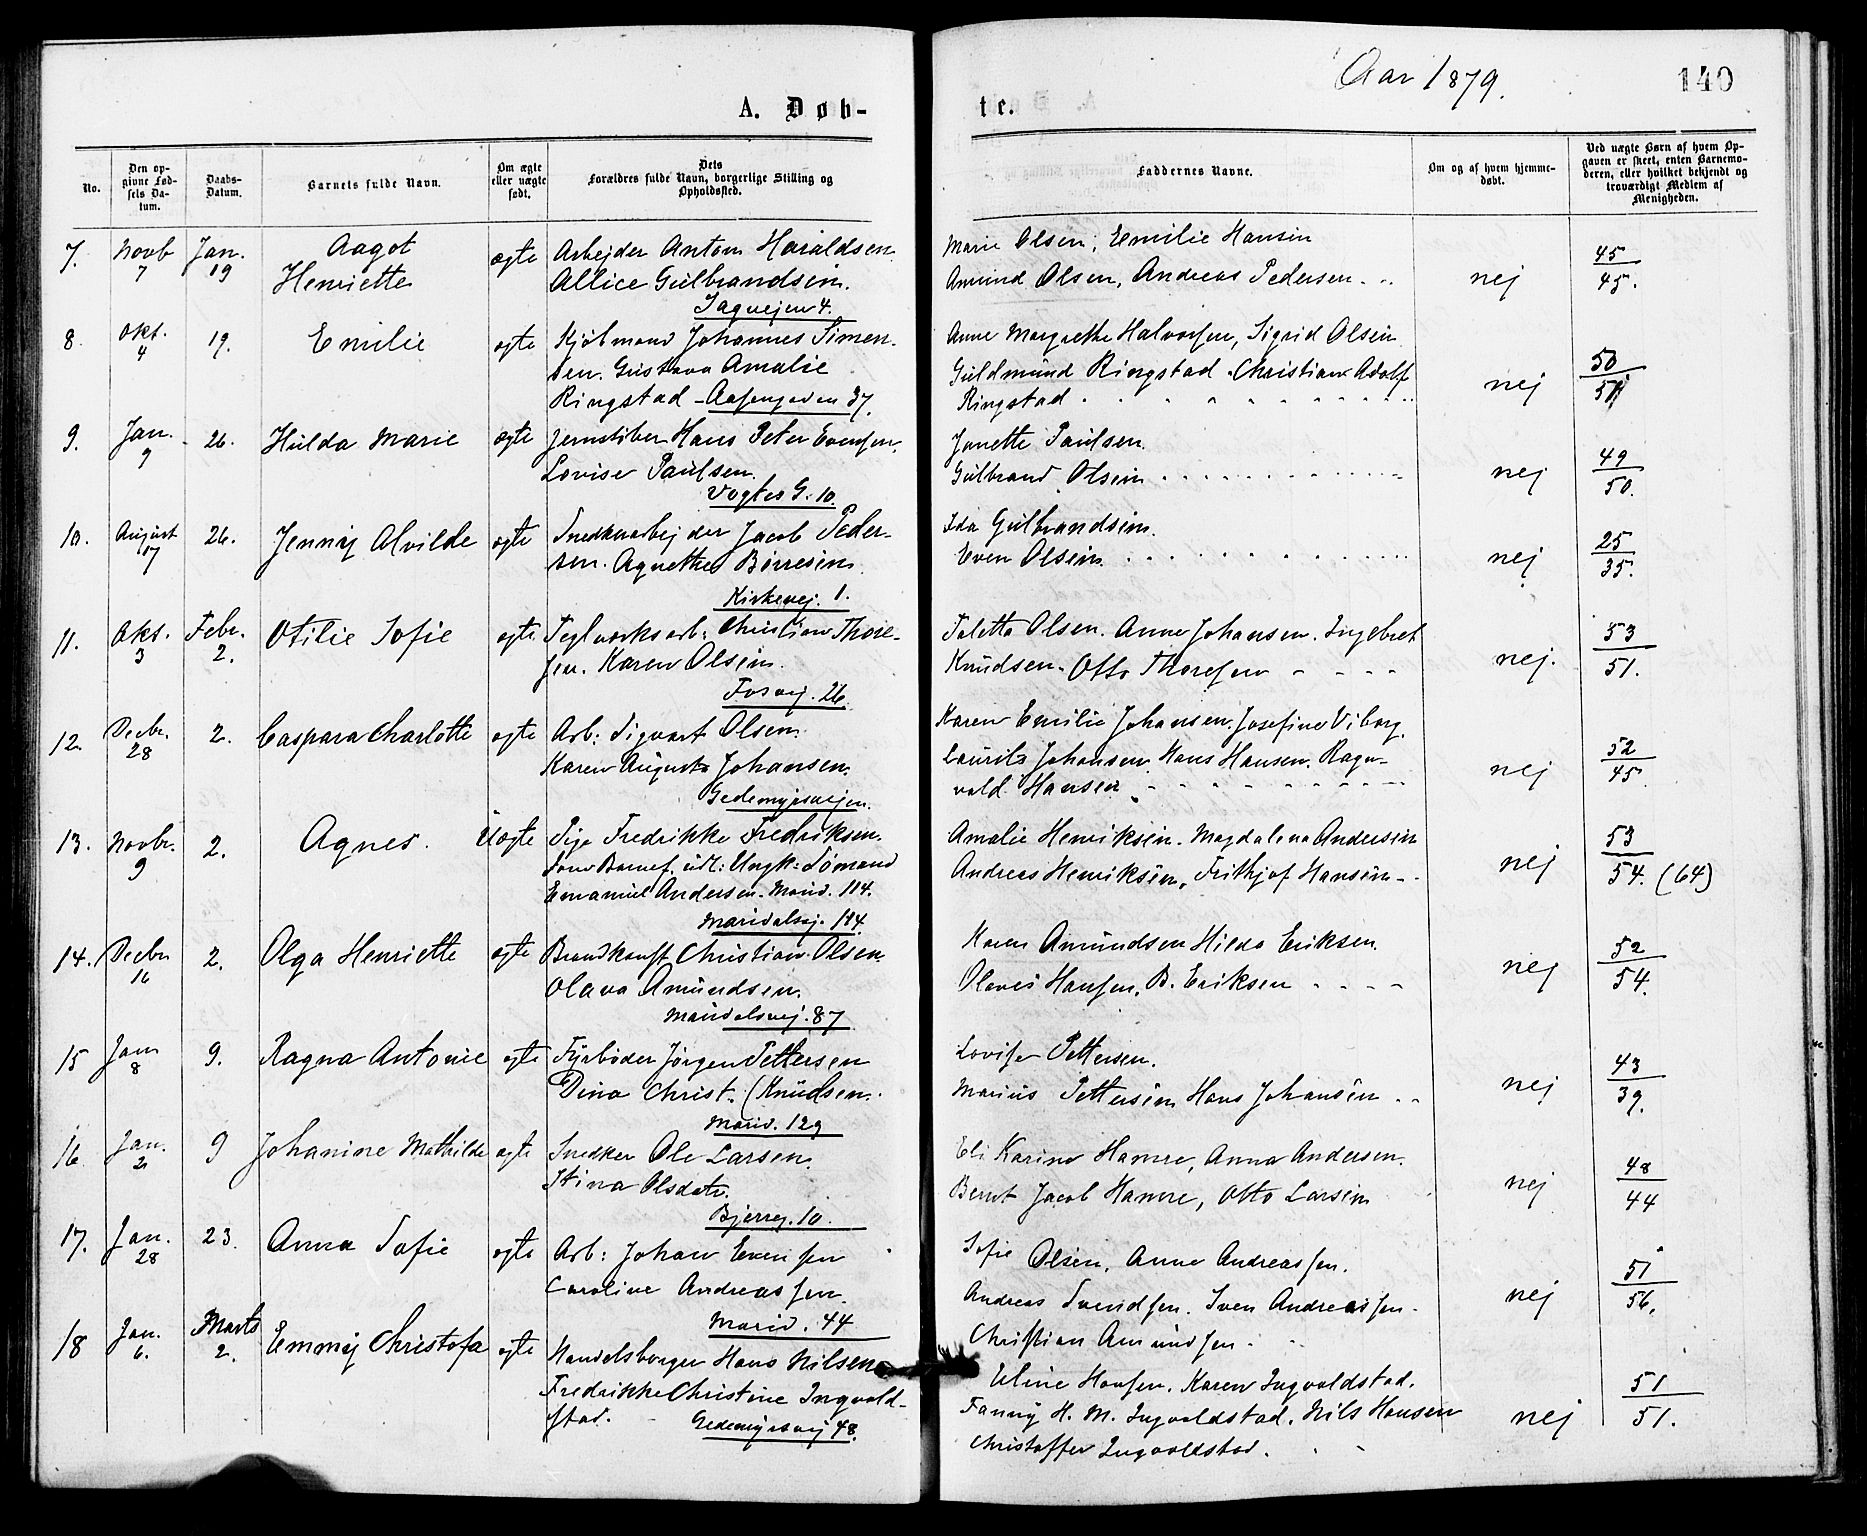 Aar 1879.
140
A. Døb-
te.
No.
Den op-
givne Fød-
sels Da-
tum.
Daabs-
Datum.
Barnets fulde Navn.
Om ægte
eller uægte
født.
Dets
Forældres fulde Navn, borgerlige Stilling og
Opholdssted.
Faddernes Navne.
Om og af hvem hjemme-
døbt.
Ved uægte Børn af hvem Op-
gaven er skeet, enten Barnemo-
deren, eller hvilket bekjendt og
troværdigt Medlem af
Menigheden.
7. Novb 7 Jan. 19 Aagot
Henriette
ægte Arbejder Anton Haraldsen
Allice Gulbrandsen.
Sagvejen 4.
Marie Olsen, Emilie Hansen
Amund Olsen, Andreas Pedersen
nej
45
45.
8. Okt. 4 19. Emilie
ægte Kjøbmand Johannes Simen-
sen. Gustava Amalie
Ringstad - Aasengaden 37.
Anne Margrethe Halvorsen, Sigrid Olsen
Guldmund Ringstad. Christian Adolf
Ringstad
nej
50
51
9. Jan. 9 26. Hulda Marie
ægte Jernstøber Hans Peter Evensen,
Lovise Paulsen.
Vogtes G. 10.
Janette Paulsen.
Gulbrand Olsen
nej
49
50.
10. August 17 26. Jenny Alvilde
ægte Snedkerarbejder Jacob Peder-
sen. Agnethe Børresen
Kirkevej. 1.
Ida Gulbrandsen.
Even Olsen
nej
25
35.
11. Okt. 3 Febr. 2. Otilie Sofie
ægte Teglværksarb: Christian Thore-
sen. Karen Olsen.
Fosvej. 26
Taletta Olsen. Anne Johansen. Ingebret
Knudsen. Otto Thoresen
nej.
53
51.
12. Decbr. 28 2. Caspara Charlotte
ægte Arb: Sigvart Olsen.
Karen Augusta Johansen.
Gedemyrsvejen.
Karen Emilie Johansen. Josefine Viborg.
Laurits Johansen. Hans Hansen. Ragn-
vald Hansen
nej
52
45
13. Novbr. 9 2. Agnes.
Uægte Pige Fredrikke Fredriksen.
som Barnef. udl: Ungk: Sømand
Emanuel Andersen. Marid. 114.
Maridalsvj. 114.
Amalie Henriksen. Magdalena Andersen
Andreas Henriksen, Frithjof Hansen
nej
53
54. (64)
14. Decbr 16 2. Olga Henriette
ægte Brandkonst Christian Olsen
Olava Amundsen.
Maridalsvej. 87
Karen Amundsen Hilda Eriksen.
Olaves Hansen. B. Eriksen
nej
52
54.
15 Jan 8 9. Ragna Antonie
ægte Fyrbøder Jørgen Pettersen
Dina Christ. (Knudsen.
Marid. 129
Lovise Pettersen.
Marius Pettersen Hans Johansen
nej
43
39.
16. Jan. 2 9 Johanine Mathilde
ægte Snedker Ole Larsen.
Stina Olsdatr.
Bjerreg. 10.
Eli Karine Hamre, Anna Andersen.
Bernt Jacob Hamre, Otto Larsen
nej
48
44
17. Jan. 28 23. Anna Sofie
ægte Arb: Johan Evensen
Caroline Andreassen.
Marid. 44
Sofie Olsen, Anne Andreassen.
Andreas Svendsen. Iven Andreassen.
Christian Amundsen.
nej
51
56.
18 Jan. 6. Marts 2. Emmy Christofa
ægte Handelsborger Hans Nilsen
Fredrikke Christine Ingvold-
stad.
Gedemyrsvej 48.
Eline Hansen. Karen Ingvoldstad.
Fanny H. M. Ingvoldstad. Nils Hansen
Christoffer Ingvoldstad.
nej
51
51.